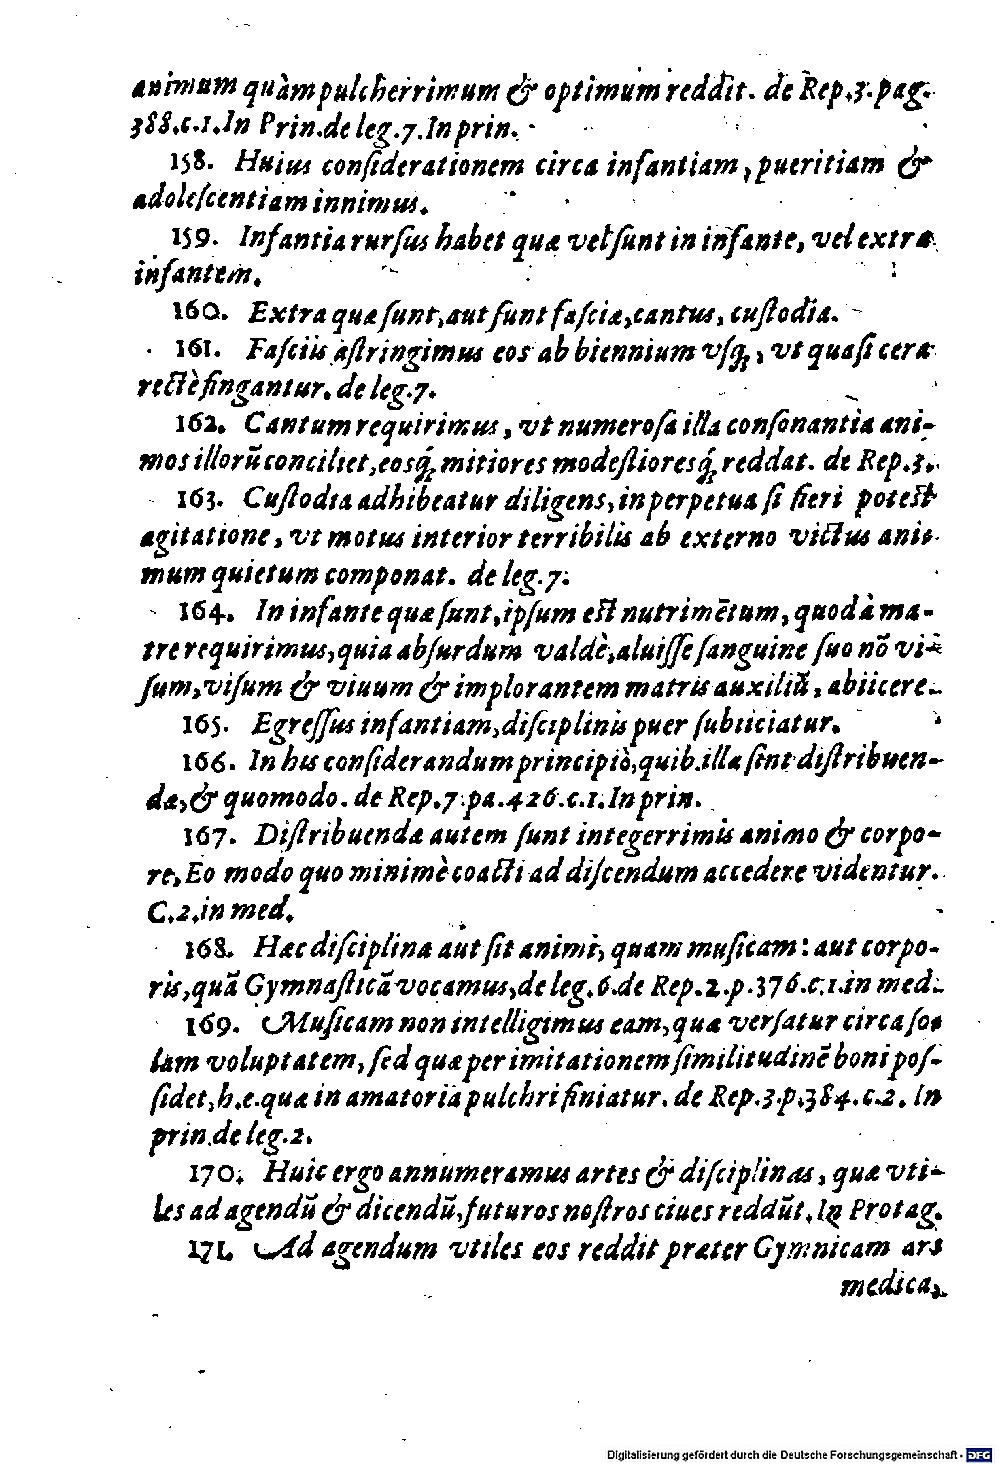 animum quàm pulcherrimum & optimum reddit. de Rep.3.pag.
388.c.1.In Prin.de leg.7.In prin.
158. Huius conſiderationem circa infantiam, pueritiam &
adoleſcentiam innimus.
159. Infantia rurſus habet quæ vel ſunt in infante, vel extra
infantem.
160. Extra quæ ſunt, aut ſunt faſciæ, cantus, cuſtodia.
161. Faſciis aſtringimus eos ab biennium vſq;, vt quaſi cera
rectè fingantur. de leg.7.
162. Cantum requirimus, vt numeroſa illa conſonantia ani-
mos illorũ conciliet, eosq́; mitiores modeſtioresq́; reddat. de Rep.3.
163. Cuſtodia adhibeatur diligens, in perpetua ſi fieri poteſt
agitatione, vt motus interior terribilis ab externo victus ani-
mum quietum componat. de leg.7.
164. In infante quæ ſunt, ipſum eſt nutrimẽtum, quod à ma-
tre requirimus, quia abſurdum valdè, aluiſſe ſanguine ſuo nõ vi-
ſum, viſum & viuum & implorantem matris auxiliũ, abiicere.
165. Egreſſus infantiam, diſciplinis puer ſubiiciatur.
166. In his conſiderandum principiò, quib. illa ſint diſtribuen-
da, & quomodo. de Rep.7.pa.426.c.1.In prin.
167. Diſtribuenda autem ſunt integerrimis animo & corpo-
re, Eo modo quo minimè coacti ad diſcendum accedere videntur.
C.2.in med.
168. Hæc diſciplina aut ſit animi, quam muſicam: aut corpo-
ris, quã Gymnaſticã vocamus, de leg.6.de Rep.2.p.376.c.1.in med.
169. Muſicam non intelligimus eam, quæ verſatur circa ſo-
lam voluptatem, ſed quæ per imitationem ſimilitudinẽ boni poſ-
ſidet, h.e. quæ in amatoria pulchri finiatur. de Rep.3.p.384.c.2. In
prin.de leg.2.
170. Huic ergo annumeramus artes & diſciplinas, quæ vti-
les ad agendũ & dicendũ, futuros noſtros ciues reddũt. In Protag.
171. Ad agendum vtiles eos reddit præter Gymnicam ars
medica,
Digitalisierung gefördert durch die Deutsche Forschungsgemeinschaft - DFG